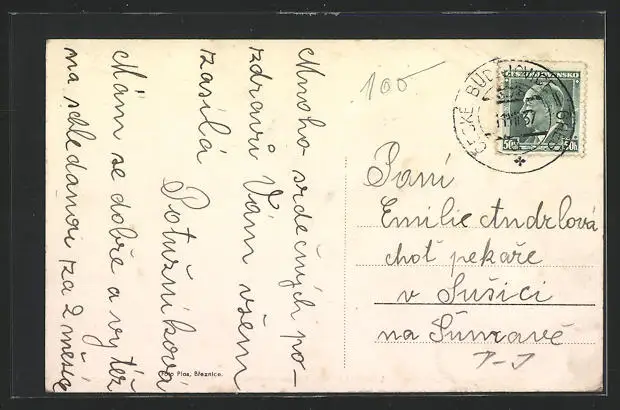 Mnoho srdečných po-
zdravů Vám všem
zasílá
Potužníková
Mám se dobře a vy též
na shledanou za 2 měsíce
Foto Plas, Březnice.
100
ČESKÉ BUDĚJOVICE
ČESKOSLOVENSKO
50h 50h
Paní
Emilie Andrlová
choť pekaře
v Sušici
na Šumavě